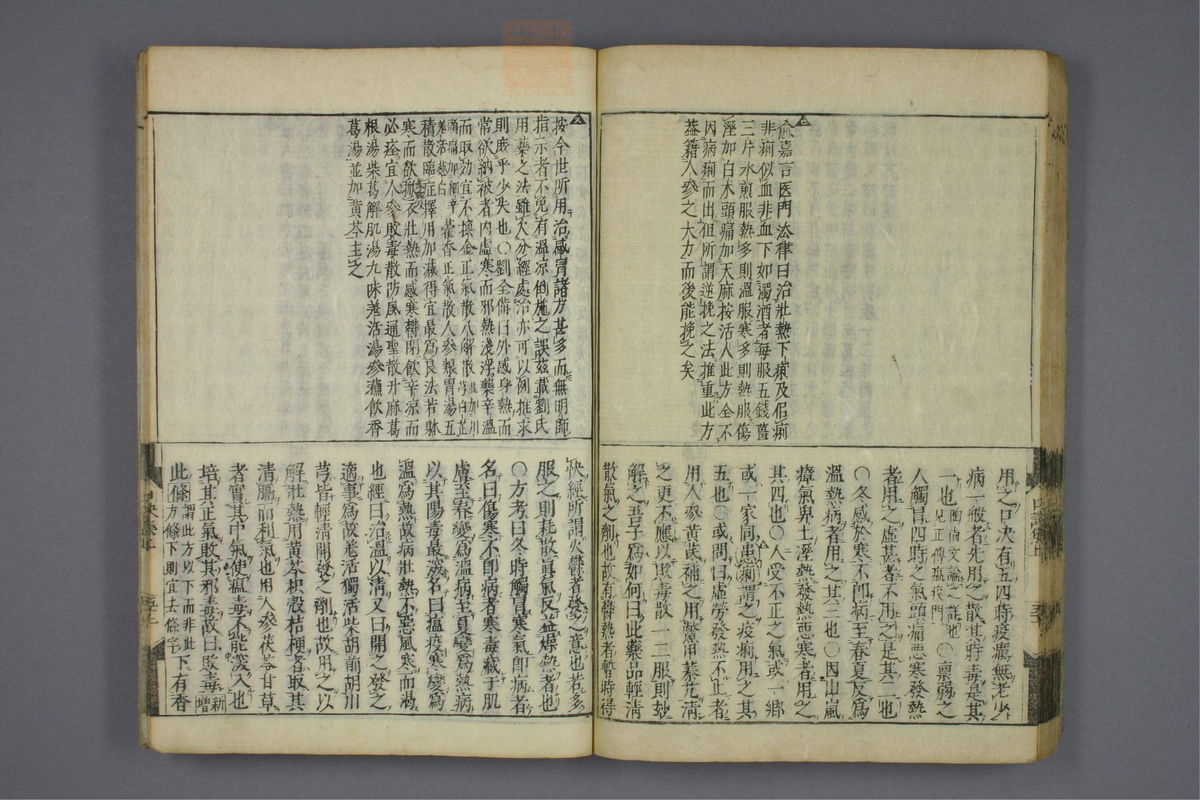 喻嘉言医門法律曰治壯熱下痢及似痢
非痢似血非血下如濁酒者每服五錢薑
三片水煎服熱多則溫服寒多則熱服傷
溼加白朮頭痛加天麻按活人此方全不
因病痢而出但所謂逆挽之法推重此方
蓋藉人參之大力而後能挽之矣
用之口決有五四時疫癘無老少
病一般者先用之散其時毒是其
一也
人觸冒四時之氣頭痛惡寒發熱
者用之虛甚者不用之是其二也
○冬感於寒不即病至春夏反為
溫熱病者用之其三也○因山嵐
瘴氣卑土溼熱發熱惡寒者用之
其四也○人受不正之氣或一鄉
或一家同患痢謂之疫痢用之其
五也○或問曰虛勞發熱不止者
用人參黃芪補之用鱉甲蓁艽清
之更不應以敗毒散一二服則玅
解之吾子為如何曰此藥品輕清
散氣之劑也故有鬱熱者暫時得
按今世所用治感冒諸方甚多而無明師
指示者不免有溫凉倒施之誤茲載劉氏
用藥之法雖欠分經處治亦可以例推求
則庶乎少失也○劉全備曰外感身熱而
常欲綿被者內虛寒而邪熱淺浮藥辛溫
而取効宜不換金正氣散八解散
積散臨症擇用加減得宜最爲良法若軀
寒而欲衣壯熱而感寒鬱閉飲辛凉而
必痊宜人參敗毒散防風通聖散升麻葛
根湯柴葛解肌湯九味羗活湯參蘇飲香
葛湯並加黄芩主之
快經所謂火鬱者發之意也若多
服之則耗散眞氣反益煩熱者也
○方考曰冬時觸冒寒氣即病者
名曰傷寒不即病者寒毒藏于肌
膚至春變爲溫病至夏變爲熱病
以其陽毒最深名曰瘟疫寒變爲
溫爲熱故病壯熱不惡風寒而渴
也經曰治溫以清又曰開之發之
適事爲故羗活獨活柴胡前胡川
芎皆輕清開發之劑也故用之以
解壯熱用黄芩枳殼桔梗者取其
清膈而利氣也用人參茯苓甘草
者實其中氣使瘟毒不能深入也
培其正氣敗其邪毒故曰敗毒新增
此條謂此方以下而非此方條下則宜去條字下有香